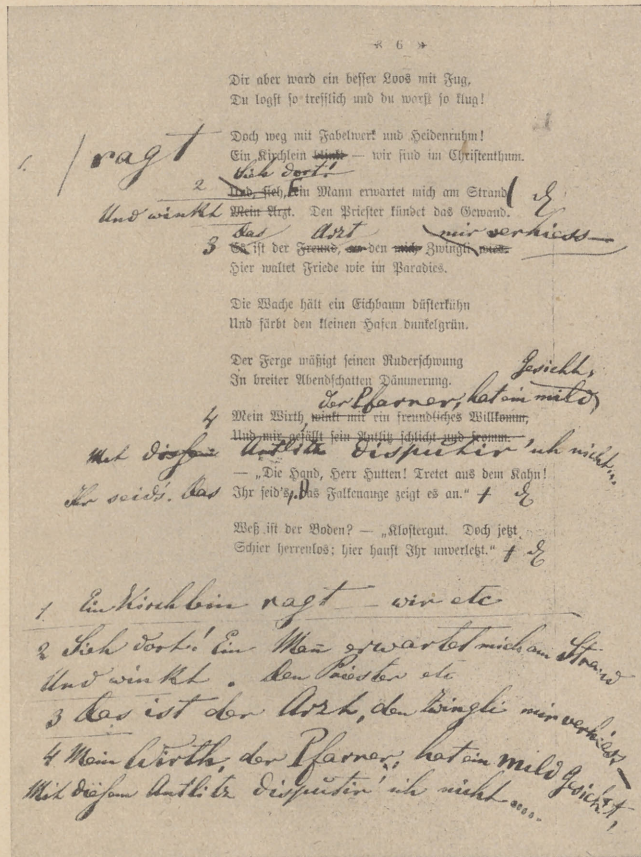 « 6 »
Dir aber ward ein besser Loos mit Fug,
Du logst so trefflich und du warst so klug!
Doch weg mit Fabelwerk und Heidenruhm!
1. / ragt Ein Kirchlein blinkt — wir sind im Christenthum.
Sieh dort!
2 Und, sieh, Ein Mann erwartet mich am Strand
Und winkt Mein Arzt. Den Priester kündet das Gewand.
das Arzt mir verhiess —
3 Es ist der Freund, an den mich Zwingli wies.
Hier waltet Friede wie im Paradies.
Die Wache hält ein Eichbaum düsterkühn
Und färbt den kleinen Hafen dunkelgrün.
Der Ferge mäßigt seinen Ruderschwung
Gesicht,
In breiter Abendschatten Dämmerung.
der Pfarrer, hat ein mild
4 Mein Wirth, winkt mir ein freundliches Willkomm,
Und mir gefällt sein Antlitz schlicht und fromm.
Mit diesem Antlitz disputir' ich nicht...
— „Die Hand, Herr Hutten! Tretet aus dem Kahn!
Ihr seid's. Das Ihr seid's, das Falkenauge zeigt es an.“ +
Weß ist der Boden? — „Klostergut. Doch jetzt
Schier herrenlos; hier haust Ihr unverletzt.“ +
1. Ein Kirchlein ragt — wir etc
2 Sieh dort! Ein Mañ erwartet mich am Strand
Und winkt. Den Priester etc
3 das ist der Arzt, den Zwingli mir verhiess —
4 Mein Wirth, der Pfarrer, hat ein mild Gesicht,
Mit diesem Antlitz disputir' ich nicht....